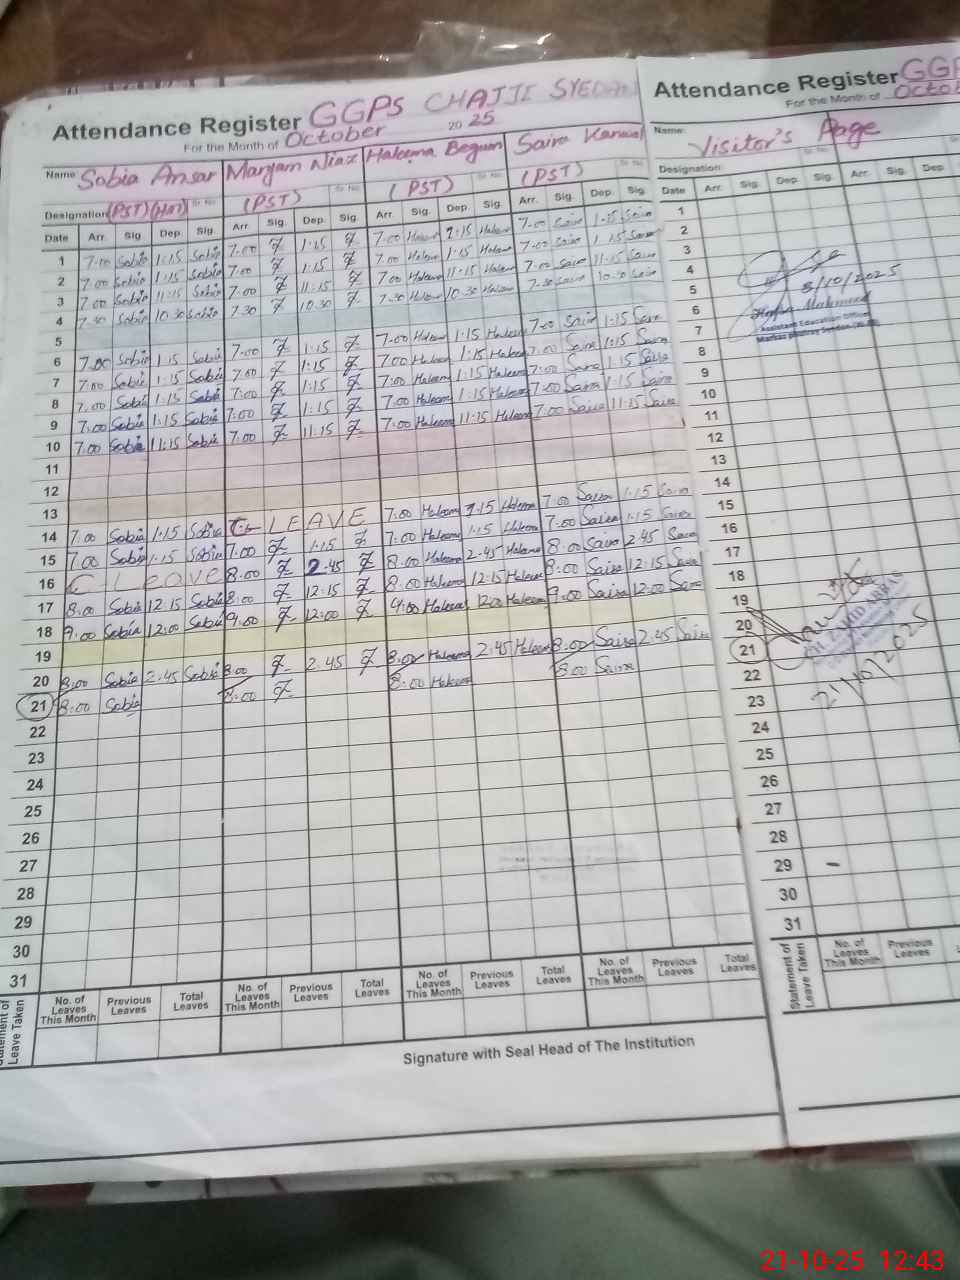 Attendance Register GGPS CHAJJI SYEDAN
For the Month of October 2025
Name Sobia Ansar Maryam Niaz Haleema Begum Saira Kanwal
Designation (PST)(HM) (PST) (PST) (PST)
Date Arr. Sig. Dep. Sig. Arr. Sig. Dep. Sig. Arr. Sig. Dep. Sig. Arr. Sig. Dep. Sig.
1 7.00 Sobia 1:15 Sobia 7.00 1:15 7.00 Haleem 1:15 Haleem 7.00 Saira 1:15 Saira
2 7.00 Sobia 1:15 Sobia 7.00 1:15 7.00 Haleem 1.15 Haleem 7.00 Saira 1 15 Saira
3 7.00 Sobia 11:15 Sobia 7.00 11:15 7.00 Haleem 11.15 Haleem 7.00 Saira 11.15 Saira
4 7.30 Sobia 10.30 Sobia 7.30 10.30 7.30 Haleem 10.30 Haleem 7.30 Saira 10.30 Saira
5
6 7.00 Sobia 1.15 Sobia 7.00 1:15 7.00 Haleem 1.15 Haleem 7.00 Saira 1:15 Saira
7 7.00 Sobia 1:15 Sobia 7.00 1:15 7.00 Haleem 1:15 Haleem 7.00 Saira 1:15 Saira
8 7.00 Sobia 1:15 Sobia 7.00 1:15 7.00 Haleem 1.15 Haleem 7.00 Saira 1.15 Saira
9 7.00 Sobia 1:15 Sobia 7:00 1:15 7.00 Haleem 1.15 Haleem 7.00 Saira 1:15 Saira
10 7.00 Sobia 11:15 Sobia 7.00 11:15 7.00 Haleem 11:15 Haleem 7.00 Saira 11.15 Saira
11
12
13
14 7.00 Sobia 1.15 Sobia C- LEAVE 7.00 Haleem 1.15 Haleem 7.00 Saira 1.15 Saira
15 7.00 Sobia 1.15 Sobia 7.00 1.15 7.00 Haleem 1.15 Haleem 7.00 Saira 1.15 Saira
16 C Leave 8.00 2.45 8.00 Haleem 2.45 Haleem 8.00 Saira 2.45 Saira
17 8.00 Sobia 12.15 Sobia 8:00 12.15 8.00 Haleem 12.15 Haleem 8.00 Saira 12.15 Saira
18 9.00 Sobia 12:00 Sobia 9.00 12:00 9.00 Haleem 12.00 Haleem 9.00 Saira 12.00 Saira
19
20 8.00 Sobia 2.45 Sobia 8.00 2.45 8.00 Haleema 2.45 Haleem 8.00 Saira 2.45 Saira
21 8.00 Sobia 8.00 8.00 Haleem 8.00 Saira
22
23
24
25
26
27
28
29
30
31
Statement of Leave Taken
No. of Leaves This Month Previous Leaves Total Leaves No. of Leaves This Month Previous Leaves Total Leaves No. of Leaves This Month Previous Leaves Total Leaves No. of Leaves This Month Previous Leaves Total Leaves
Signature with Seal Head of The Institution
Attendance Register GGP
For the Month of Octobe
Name: Visitor's Page
Designation:
Date Arr. Sig. Dep. Sig. Arr. Sig. Dep.
1
2
3
4
5
8/10/2025
6
Assistant Education Officer
7
8
9
10
11
12
13
14
15
16
17
18
19
20
21
21/10/2025
22
23
24
25
26
27
28
29
30
31
Statement of Leave Taken
No. of Leaves This Month Previous Leaves
21-10-25 12:43